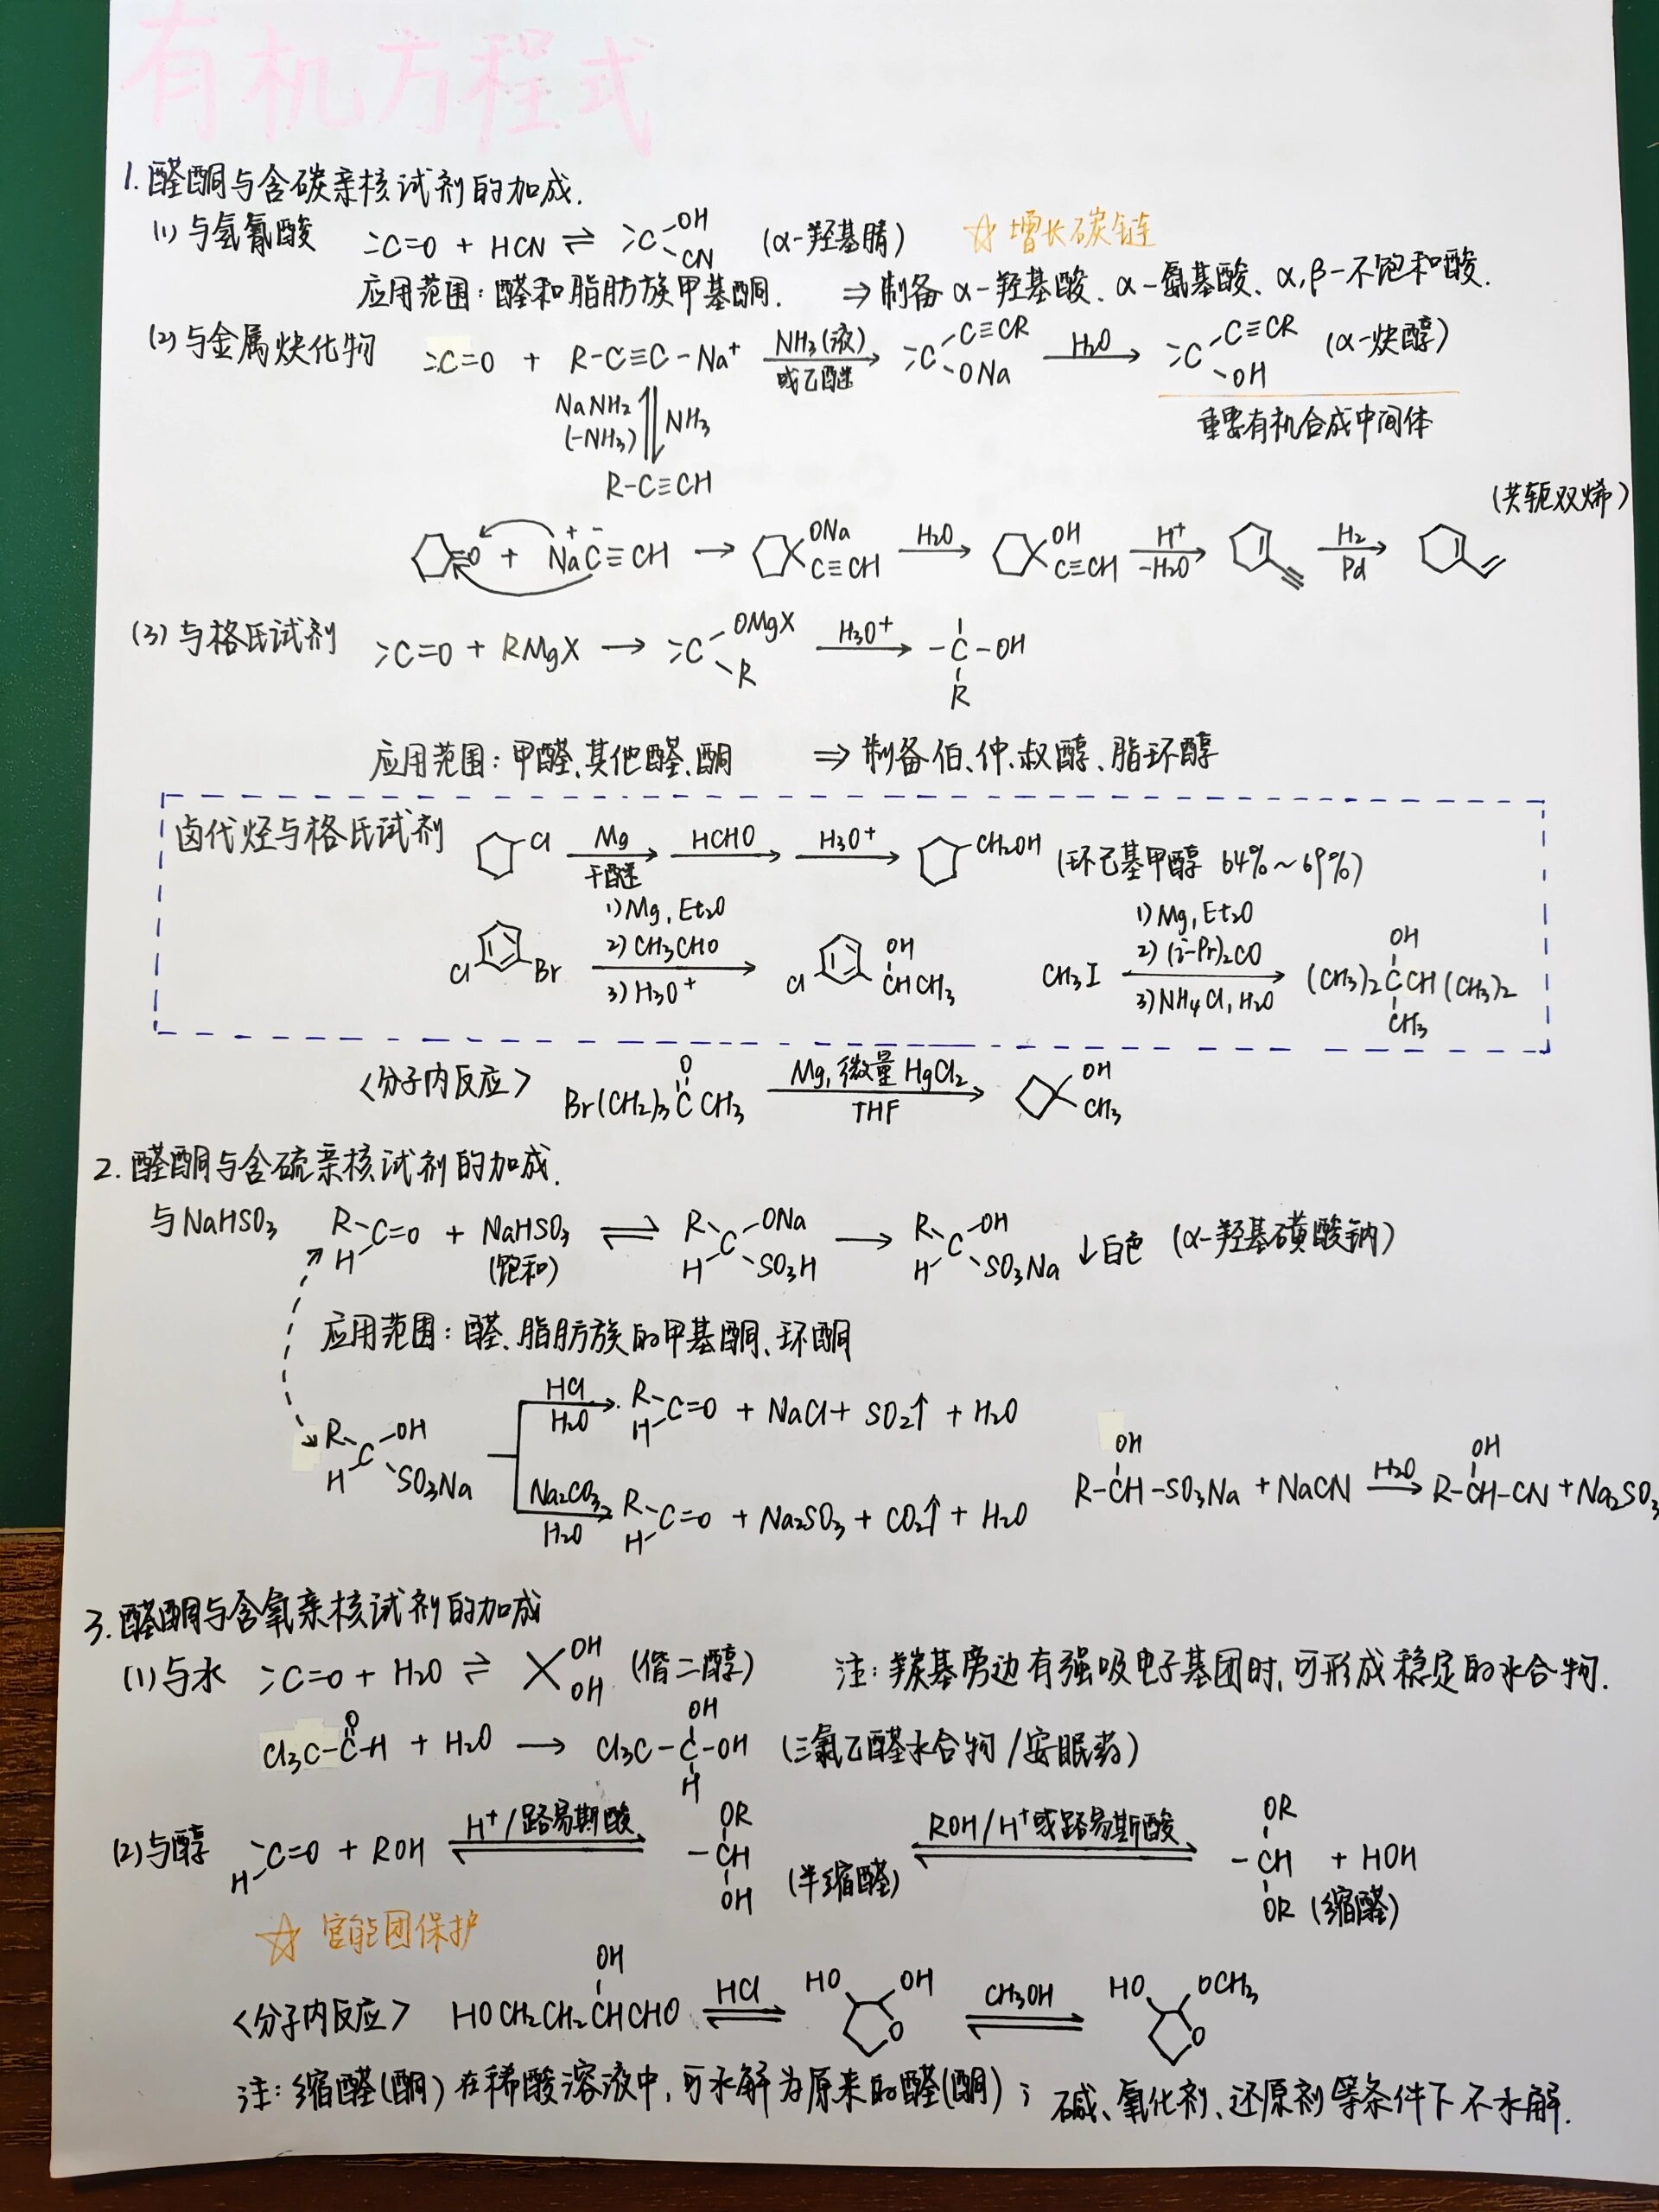 有机方程式
1. 醛酮与含碳亲核试剂的加成.
(1) 与氢氰酸 >C=O + HCN ⇌ >C(OH)(CN) (α-羟基腈) ☆ 增长碳链
应用范围: 醛和脂肪族甲基酮. ⇒ 制备 α-羟基酸、α-氨基酸、α,β-不饱和酸.
(2) 与金属炔化物 >C=O + R-C≡C-Na⁺ —NH₃(液) 或乙醚→ >C(C≡CR)(ONa) —H₂O→ >C(C≡CR)(OH) (α-炔醇)
NaNH₂ (-NH₃) ⇅ NH₃ 重要有机合成中间体
R-C≡CH
(共轭双烯)
=O + Na⁺C⁻≡CH → ONa C≡CH —H₂O→ OH C≡CH —H⁺ -H₂O→ —H₂ Pd→
(3) 与格氏试剂 >C=O + RMgX → >C(OMgX)(R) —H₃O⁺→ -C(R)-OH
应用范围: 甲醛、其他醛、酮 ⇒ 制备伯、仲、叔醇、脂环醇
卤代烃与格氏试剂 Cl —Mg 干醚→ —HCHO→ —H₃O⁺→ CH₂OH (环己基甲醇 64%~69%)
Cl Br —1) Mg, Et₂O 2) CH₃CHO 3) H₃O⁺→ Cl CH(OH)CH₃ CH₃I —1) Mg, Et₂O 2) (i-Pr)₂CO 3) NH₄Cl, H₂O→ (CH₃)₂C(OH)(CH₃)CH(CH₃)₂
<分子内反应> Br(CH₂)₃C(=O)CH₃ —Mg, 微量HgCl₂ THF→ OH CH₃
2. 醛酮与含硫亲核试剂的加成.
与NaHSO₃ R H C=O + NaHSO₃ (饱和) ⇌ R H C ONa SO₃H → R H C OH SO₃Na ↓白色 (α-羟基磺酸钠)
应用范围: 醛、脂肪族的甲基酮、环酮
R H C OH SO₃Na —HCl H₂O→ R H C=O + NaCl + SO₂↑ + H₂O
—Na₂CO₃ H₂O→ R H C=O + Na₂SO₃ + CO₂↑ + H₂O
R-CH(OH)-SO₃Na + NaCN —H₂O→ R-CH(OH)-CN + Na₂SO₃
3. 醛酮与含氧亲核试剂的加成
(1) 与水 >C=O + H₂O ⇌ OH OH (偕二醇) 注: 羰基旁边有强吸电子基团时, 可形成稳定的水合物.
Cl₃C-C(=O)-H + H₂O → Cl₃C-C(OH)(H)-OH (三氯乙醛水合物/安眠药)
(2) 与醇 H C=O + ROH ⇌ H⁺/路易斯酸 -CH(OR)(OH) (半缩醛) ⇌ ROH/H⁺或路易斯酸 -CH(OR)(OR) + HOH (缩醛)
☆ 官能团保护
<分子内反应> HOCH₂CH₂CH(OH)CHO ⇌ HCl HO OH O ⇌ CH₃OH HO OCH₃ O
注: 缩醛(酮) 在稀酸溶液中, 可水解为原来的醛(酮); 碱、氧化剂、还原剂等条件下不水解.